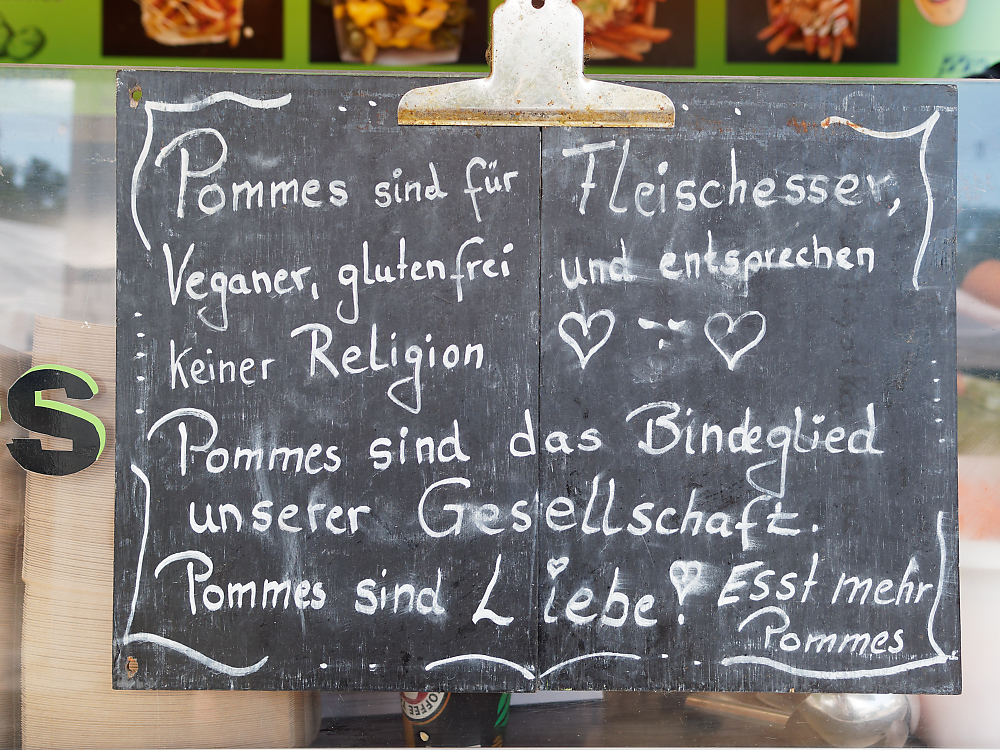 Pommes sind für Fleischesser,
Veganer, glutenfrei und entsprechen
keiner Religion
Pommes sind das Bindeglied
unserer Gesellschaft.
Pommes sind Liebe! Esst mehr
Pommes
S
COFFEE